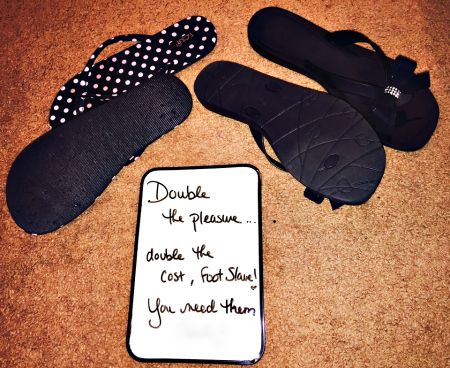 Double
the pleasure...
double the
cost, Foot Slave!
You need them